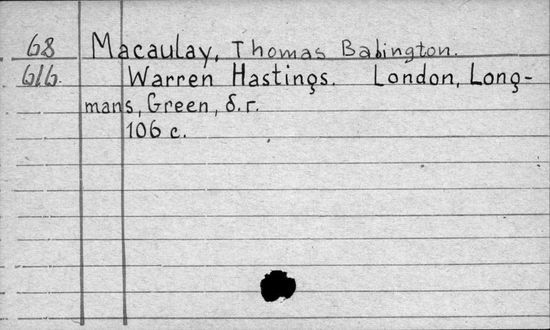 68 Macaulay, Thomas Babington.
616. Warren Hastings. London, Long-
mans, Green, б.г.
106 с.